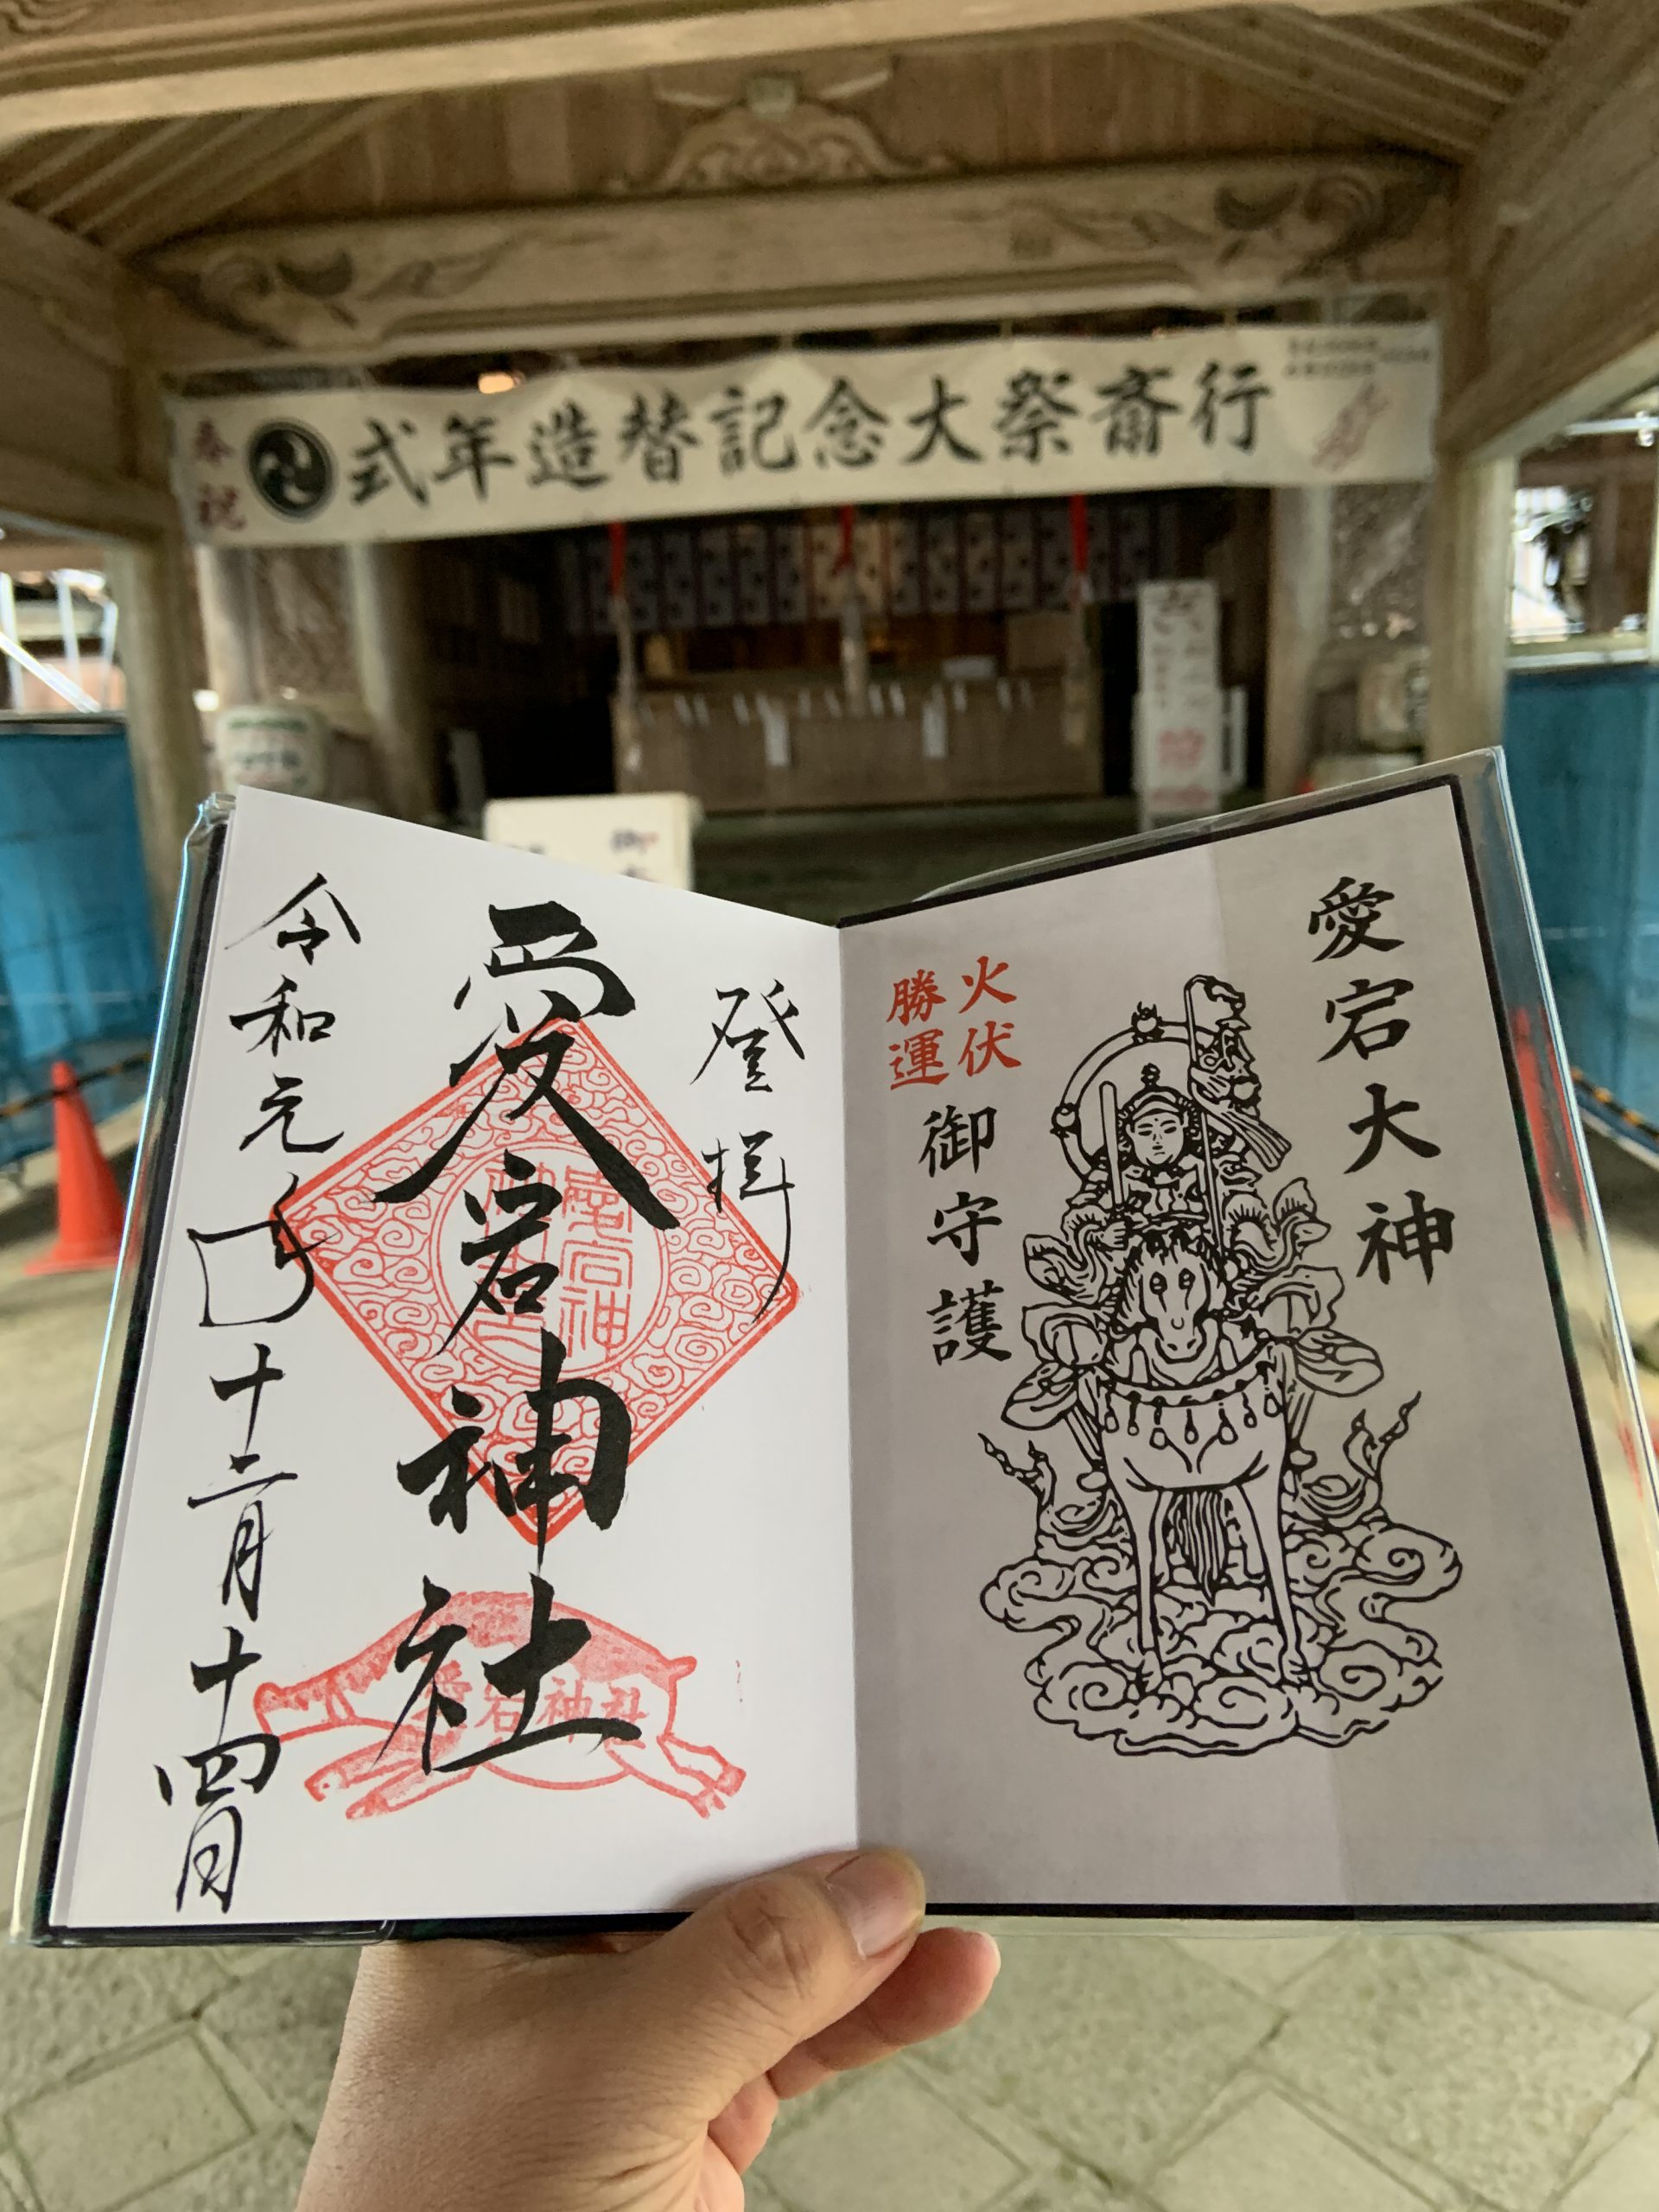 奉祝
式年造替記念大祭斎行
愛宕大神
火伏
勝運
御守護
登拝
愛宕神社
愛宕神社
令和元年十二月十四日